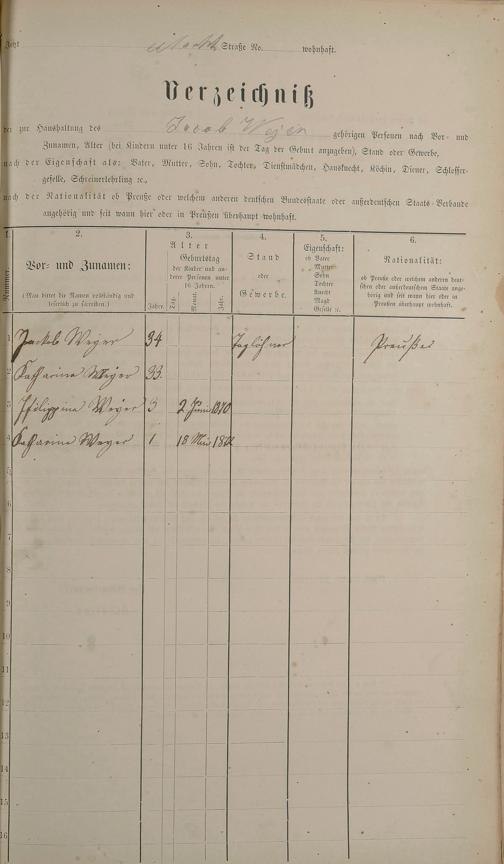 Jetzt Straße No. wohnhaft.
Verzeichniß
der zur Haushaltung des Jacob Weyer gehörigen Personen nach Vor- und
Zunamen, Alter (bei Kindern unter 16 Jahren ist der Tag der Geburt anzugeben), Stand oder Gewerbe,
nach der Eigenschaft als: Vater, Mutter, Sohn, Tochter, Dienstmädchen, Hausknecht, Köchin, Diener, Schlosser-
geselle, Schreinerlehrling ec.,
nach der Nationalität ob Preuße oder welchem anderen deutschen Bundesstaate oder außerdeutschen Staats-Verbande
angehörig und seit wann hier oder in Preußen überhaupt wohnhaft.
1. 2. 3. 4. 5. 6.
Nummer.
Vor- und Zunamen:
(Man bittet die Namen vollständig und
leserlich zu schreiben.)
Alter
Geburtstag
der Kinder und an-
derer Personen unter
16 Jahren.
Jahre. Tag. Monat. Jahr.
Stand
oder
Gewerbe.
Eigenschaft:
ob Vater
Mutter
Sohn
Tochter
Knecht
Magd
Geselle ec.
Nationalität:
ob Preuße oder welchem anderen deut-
schen oder außerdeutschen Staate ange-
hörig und seit wann hier oder in
Preußen überhaupt wohnhaft.
1 Jackob Weyer 34 Preuße
2 Katharina Weyer 33
3 Philippina Weyer 3 2 Juni 1870
4 Katharina Weyer 1 18
5
6
7
8
9
10
11
12
13
14
15
16